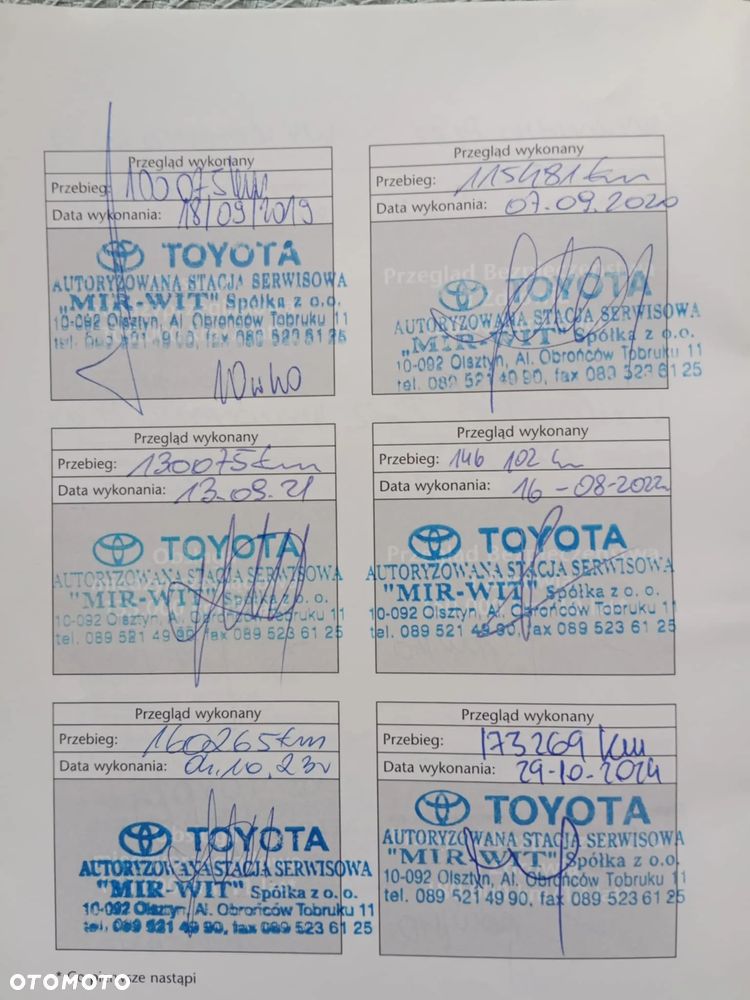 Przegląd wykonany
Przebieg: 100075 km
Data wykonania: 18/09/2019
TOYOTA
AUTORYZOWANA STACJA SERWISOWA
„MIR-WIT" Spółka z o.o.
10-092 Olsztyn, Al. Obrońców Tobruku 11
tel. 089 521 49 90, fax 089 523 61 25
Przegląd wykonany
Przebieg: 115481 km
Data wykonania: 07.09.2020
TOYOTA
AUTORYZOWANA STACJA SERWISOWA
„MIR-WIT" Spółka z o.o.
10-092 Olsztyn, Al. Obrońców Tobruku 11
tel. 089 521 49 90, fax 089 523 61 25
Przegląd wykonany
Przebieg: 130075 km
Data wykonania: 13.09.21
TOYOTA
AUTORYZOWANA STACJA SERWISOWA
"MIR-WIT" Spółka z o. o.
10-092 Olsztyn, Al. Obrońców Tobruku 11
tel. 089 521 49 90, fax 089 523 61 25
Przegląd wykonany
Przebieg: 146 102 km
Data wykonania: 16-08-2022
TOYOTA
AUTORYZOWANA STACJA SERWISOWA
"MIR-WIT" Spółka z o. o.
10-092 Olsztyn, Al. Obrońców Tobruku 11
tel. 089 521 49 90, fax 089 523 61 25
Przegląd wykonany
Przebieg: 160265 km
Data wykonania: 10.23r
TOYOTA
AUTORYZOWANA STACJA SERWISOWA
"MIR-WIT" Spółka z o. o.
10-092 Olsztyn, Al. Obrońców Tobruku 11
tel. 089 521 49 90, fax 089 523 61 25
Przegląd wykonany
Przebieg: 173269 km
Data wykonania: 29-10-2024
TOYOTA
AUTORYZOWANA STACJA SERWISOWA
"MIR-WIT" Spółka z o. o.
10-092 Olsztyn, Al. Obrońców Tobruku 11
tel. 089 521 49 90, fax 089 523 61 25
* Co pierwsze nastąpi
OTOMOTO